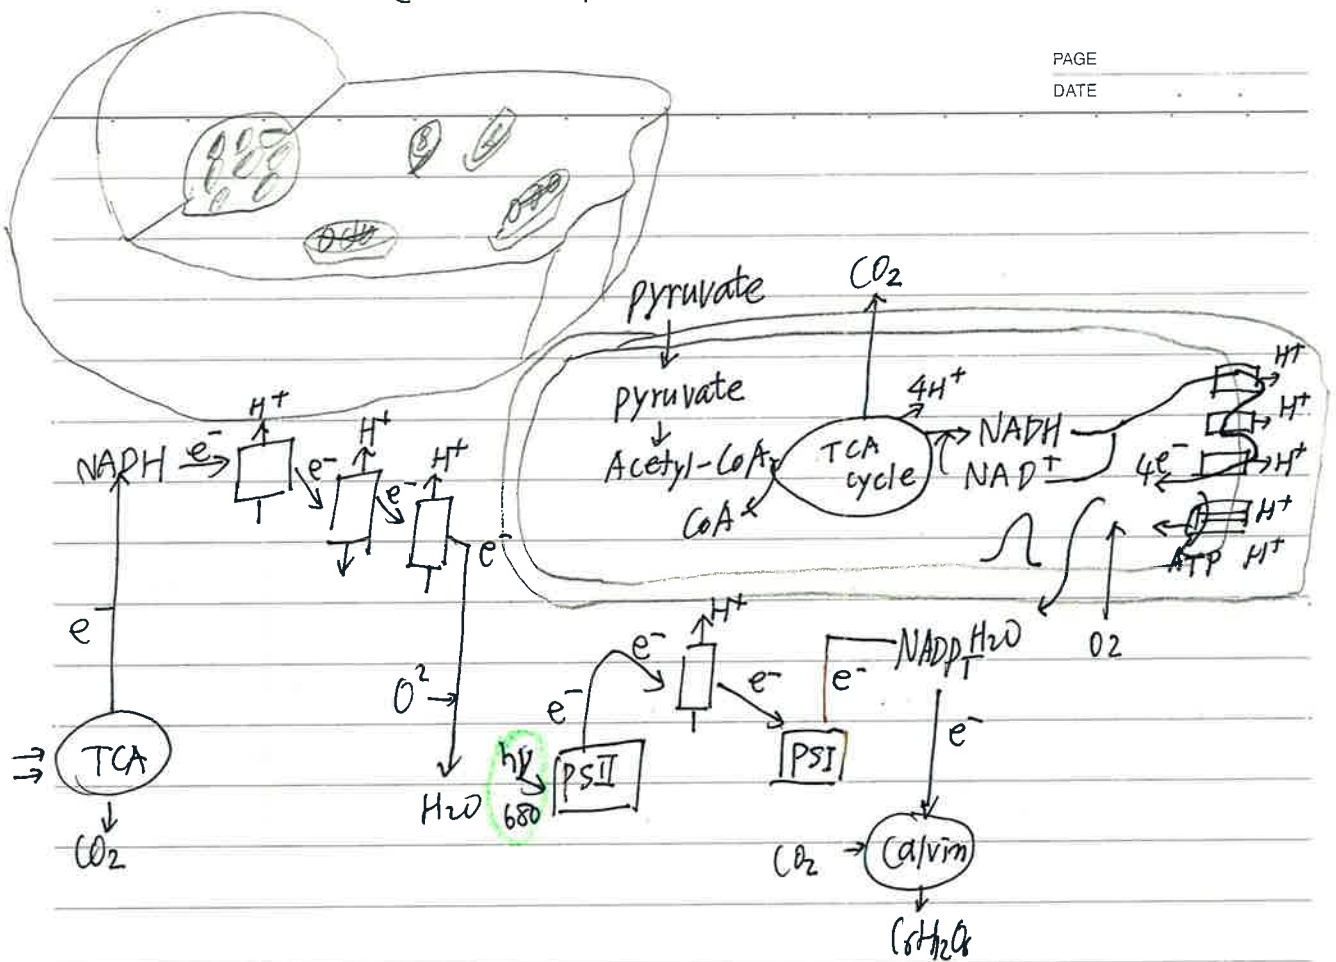 PAGE
DATE
pyruvate
CO2
pyruvate
Acetyl-CoA
CoA
TCA
cycle
4H+
NADH
NAD+
H+
H+
H+
4e-
H+
H+
ATP
O2
H2O
NADH
e-
H+
e-
H+
e-
H+
e-
e-
TCA
CO2
O2
H2O
hν
680
PSII
e-
e-
H+
e-
PSI
e-
NADP
e-
CO2
Calvin